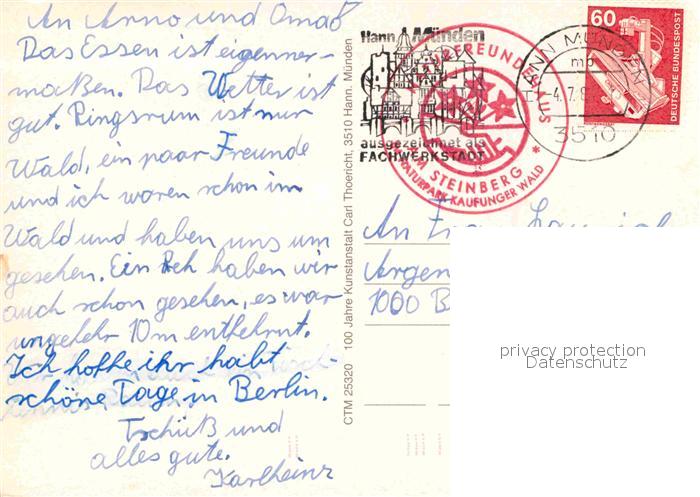 An Anno und Oma
Das Essen ist eigener-
maßen. Das Wetter ist
gut. Ringsrum ist nur
Wald, ein paar Freunde
und ich waren schon im
Wald und haben uns um
gesehen. Ein Reh haben wir
auch schon gesehen, es war
ungefehr 10m entfehrnt.
Ich hoffe ihr habt
schöne Tage in Berlin.
Tschüß und
alles gute.
Karlheinz
CTM 25320 100 Jahre Kunstanstalt Carl Thoericht, 3510 Hann. Münden
Hann. Münden
ausgezeichnet als
FACHWERKSTADT
NATURFREUNDEHAUS
AM STEINBERG
NATURPARK KAUFUNGER WALD
HANN MÜNDEN
mp
-4.7.8
3510
60
DEUTSCHE BUNDESPOST
An Frau
Argen
1000 B
privacy protection
Datenschutz